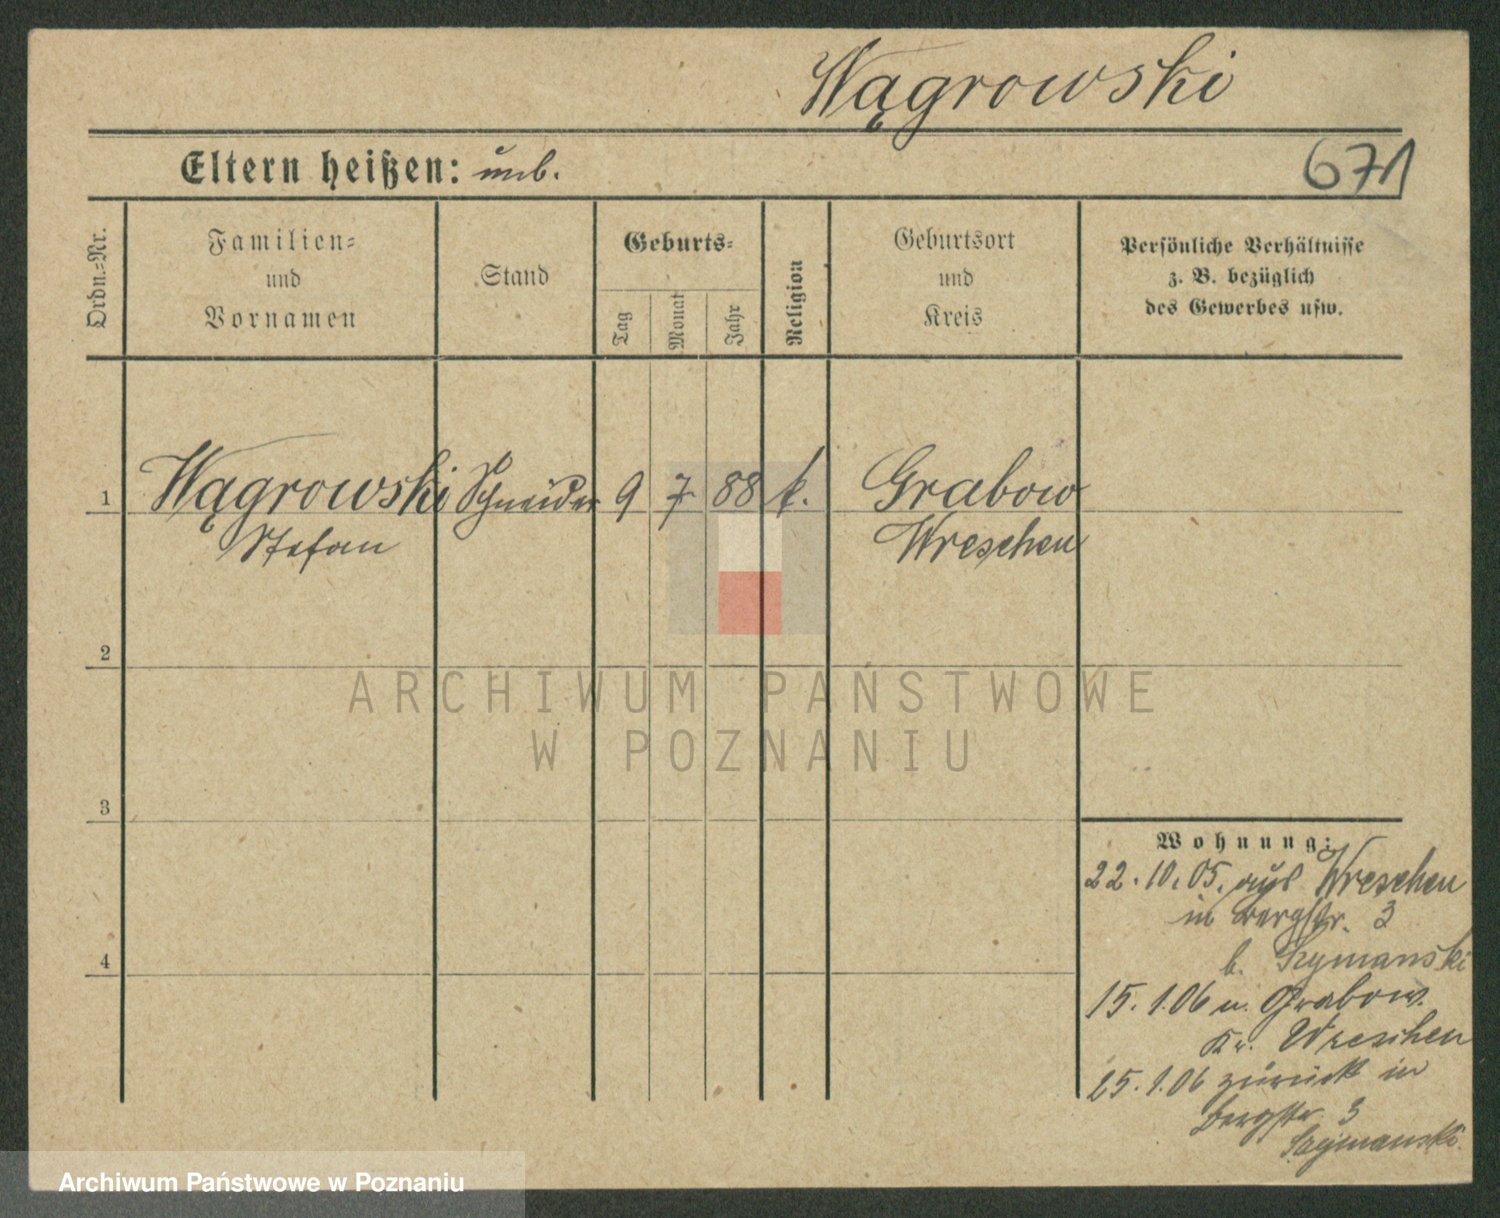 Wągrowski
Eltern heißen: unb.
671
Ordn.=Nr.
Familien=
und
Vornamen
Stand
Geburts=
Tag
Monat
Jahr
Religion
Geburtsort
und
Kreis
Persönliche Verhältnisse
z. B. bezüglich
des Gewerbes usw.
1 Wągrowski Schneider 9 7 88 k. Grabow
Stefan Wreschen
2
ARCHIWUM PAŃSTWOWE
W POZNANIU
3
4
Wohnung:
22.10.05. aus Wreschen
in Bergstr. 3
b. Szymanski
15.1.06 n. Grabow.
Kr. Wreschen
25.1.06 zurück in
Bergstr 3
Szymanski.
Archiwum Państwowe w Poznaniu